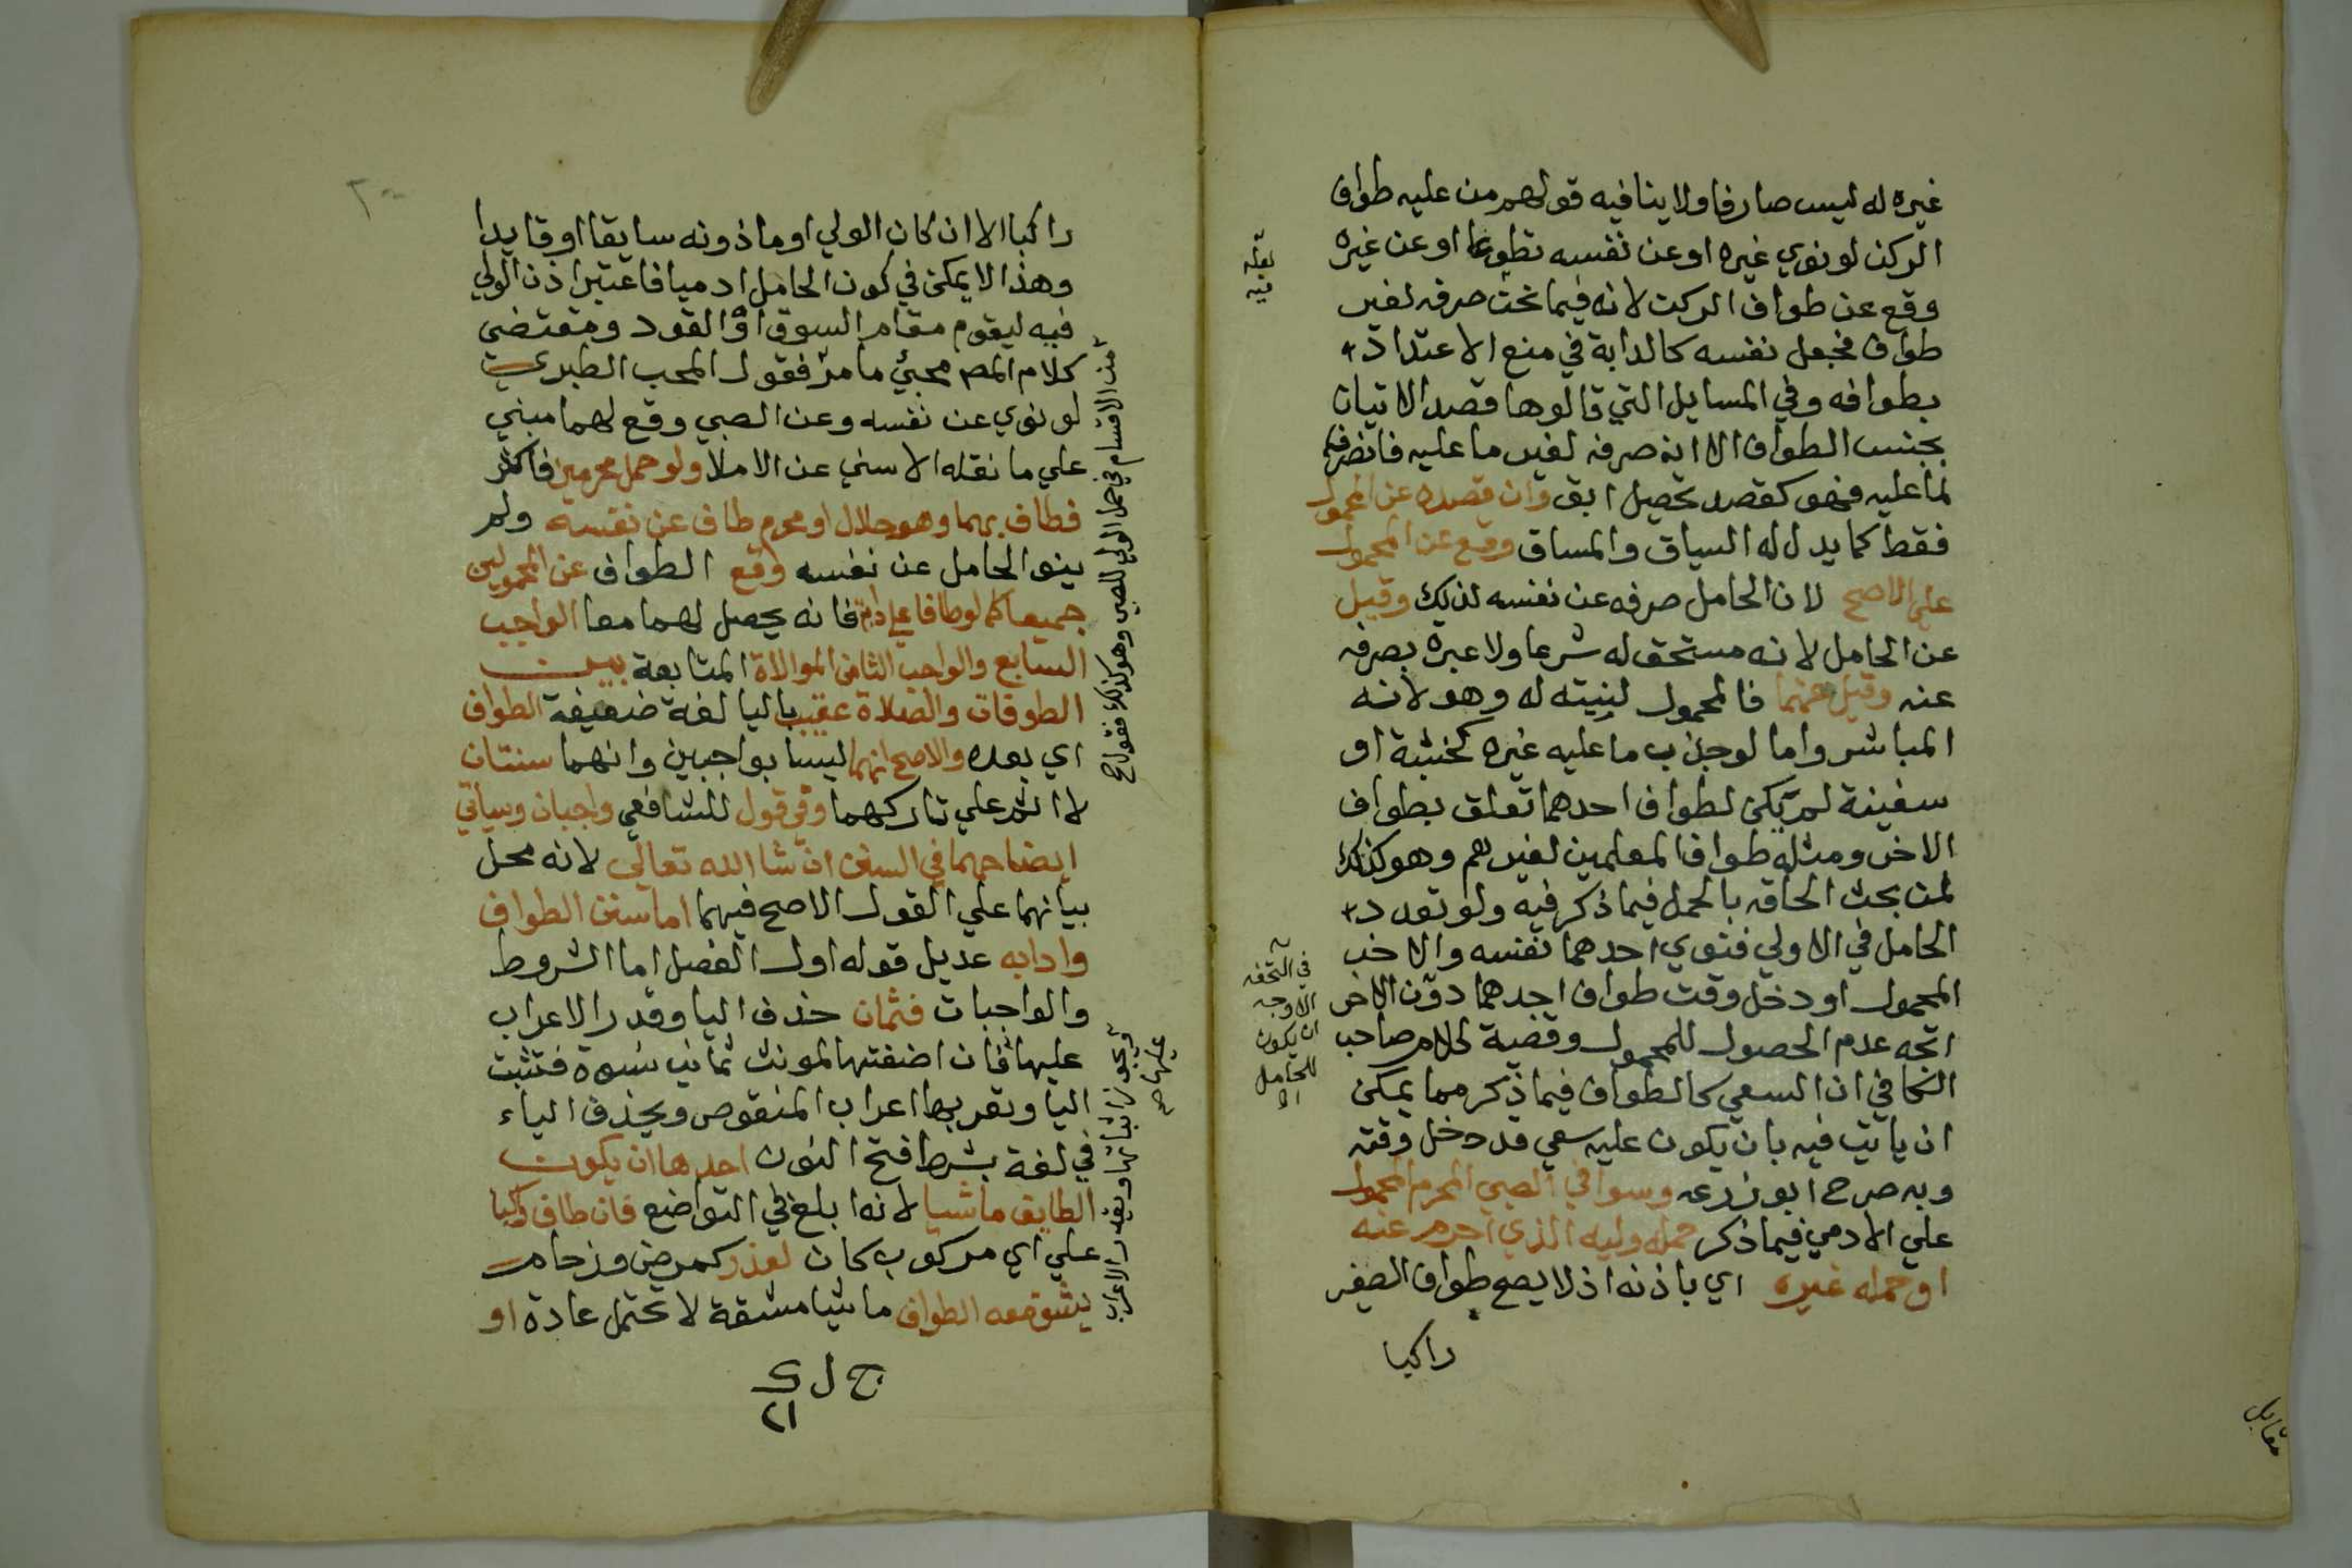 غيره له ليس صارفا ولا ينافيه قولهم من عليه طواف
الركن لو نوي غيره او عن نفسه تطوعا او عن غيره
وقع عن طواف الركن لانه فيما نحن صرفه لغير
طواف فجعل نفسه كالدابة في منع الاعتداد
بطوافه وفي المسايل التي قالوها قصد الاتيان
بجنس الطواف الا انه صرفه لغير ما عليه فانصرف
لما عليه فهو كقصد تحصيل ابق وان قصده عن المحمول
فقط كما يدل له السياق والمساق وقع عن المحمول
علي الاصح لان الحامل صرفه عن نفسه لذلك وقيل
عن الحامل لانه مستحق له شرعا ولا عبرة بصرفه
عنه وقيل عنهما فالمحمول لنيته له وهو لانه
المباشر واما لو جذب ما عليه غيره كخشبة او
سفينة لم يكن لطواف احدهما تعلق بطواف
الاخر ومثله طواف المعلمين لغيرهم وهو كذلك
لمن بحث الحاقه بالحمل فيما ذكر فيه ولو تعدد
الحامل في الاولي فنوي احدهما نفسه والاخر
المحمول او دخل وقت طواف احدهما دون الاخر
اتجه عدم الحصول للمحمول وقضية كلام صاحب
الكافي ان السعي كالطواف فيما ذكر مما يمكن
ان ياتي فيه بان يكون عليه سعي قد دخل وقته
وبه صرح ابو زرعه وسوا في الصبي المحرم المحمول
علي الادمي فيما ذكر حمله وليه الذي احرم عنه
او حمله غيره اي باذنه اذ لا يصح طواف الصغير
راكبا
في التحفه
الاوجه
ان يكون
للحامل
مقابل
راكبا الا ان كان الولي او ماذونه سايقا او قايدا
وهذا لا يمكن في كون الحامل ادميا فاعتبر اذن الولي
فيه ليقوم مقام السوق او القود ومقتضي
كلام المصر مجئ ما مر فقول المحب الطبري
لو نوي عن نفسه وعن الصبي وقع لهما مبني
علي ما نقله الاسني عن الاملا ولو حمل محرمين فاكثر
فطاف بهما وهو حلال او محرم طاف عن نفسه ولم
ينو الحامل عن نفسه وقع الطواف عن المحمولين
جميعا كما لو طافا علي دابة فانه يحصل لهما معا الواجب
السابع والواجب الثامن الموالاة المتابعة بين
الطوفات والصلاة عقيب باليا لغة ضعيفة الطواف
اي بعده والاصح انهما ليسا بواجبين وانهما سنتان
لا اثم علي تاركهما وفي قول للشافعي واجبان وسياتي
ايضاحهما في السنن ان شا الله تعالي لانه محل
بيانهما علي القول الاصح فيهما اما سنن الطواف
وادابه عديل قوله اول الفصل اما الشروط
والواجبات فثمان حذف اليا وقدر الاعراب
عليها فان اضفتها لمونث ثماني نسوة فتثبت
اليا وتعربها اعراب المنقوص ويحذف الياء
في لغة بشرط فتح النون احدها ان يكون
الطايف ماشيا لانه ابلغ في التواضع فان طاف راكبا
علي اي مركوب كان لعذر كمرض وزحام
يشق معه الطواف ماشيا مشقة لا تحتمل عادة او
من الاقسام في حمل الولي للصبي وهو كذلك فقول صح
ويجوز اثباتها وتقدير الاعراب
عليها صح